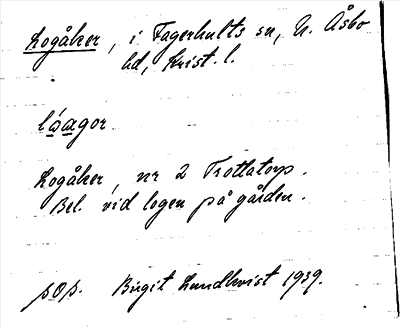 Logåker, i Fagerhults sn, N. Åsbo
hd, Krist. l.
lóagor
Logåker, nr 2 Trottatorp.
Bel. vid logen på gården.
pop. Birgit Lundkvist 1939.